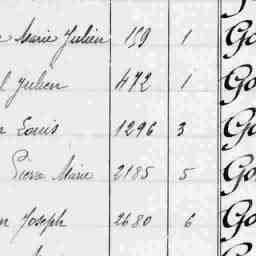 Marie Julien 159 1 Go
Julien 472 1 Go
Louis 1296 3 Go
Pierre Marie 2185 5 Go
Joseph 2680 6 Go